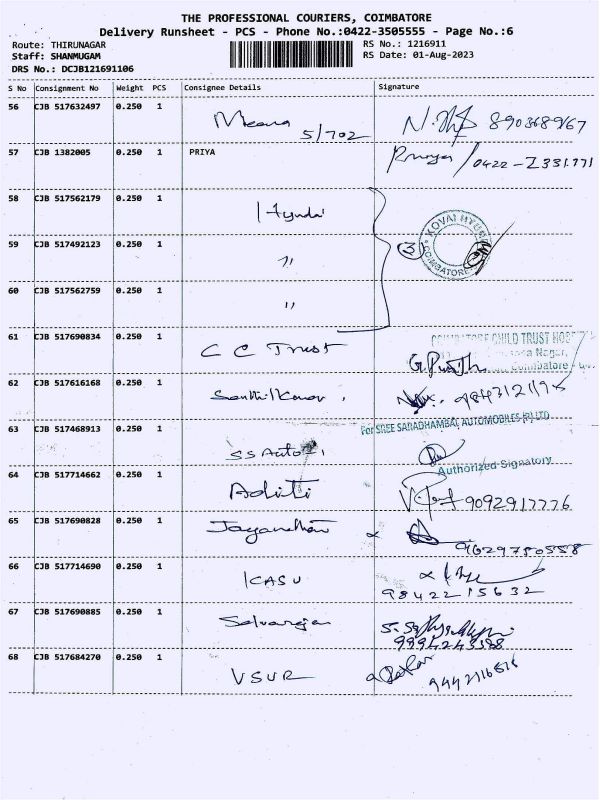 THE PROFESSIONAL COURIERS, COIMBATORE
Delivery Runsheet - PCS - Phone No.:0422-3505555 - Page No.:6
Route: THIRUNAGAR RS No.: 1216911
Staff: SHANMUGAM RS Date: 01-Aug-2023
DRS No.: DCJB121691106
S No Consignment No Weight PCS Consignee Details Signature
56 CJB 517632497 0.250 1 Meena 5/702 8903689167
57 CJB 1382005 0.250 1 PRIYA Priya /0422-2331771
58 CJB 517562179 0.250 1 Hyundai
KOVAI HYUN
59 CJB 517492123 0.250 1 " 3
COIMBATORE
60 CJB 517562759 0.250 1 "
61 CJB 517690834 0.250 1 C C Trust
COIMBATORE CHILD TRUST HOS
Nagar,
Coimbatore
62 CJB 517616168 0.250 1 Senthilkumar.
For SREE SARADHAMBAL AUTOMOBILES (P) LTD
63 CJB 517468913 0.250 1 SS Auto
Authorized Signatory
64 CJB 517714662 0.250 1 Aditi 9092917776
65 CJB 517690828 0.250 1 9629750558
66 CJB 517714690 0.250 1 ICASU
98422 15632
67 CJB 517690885 0.250 1 Selvaraja
9994243598
68 CJB 517684270 0.250 1 VSUR